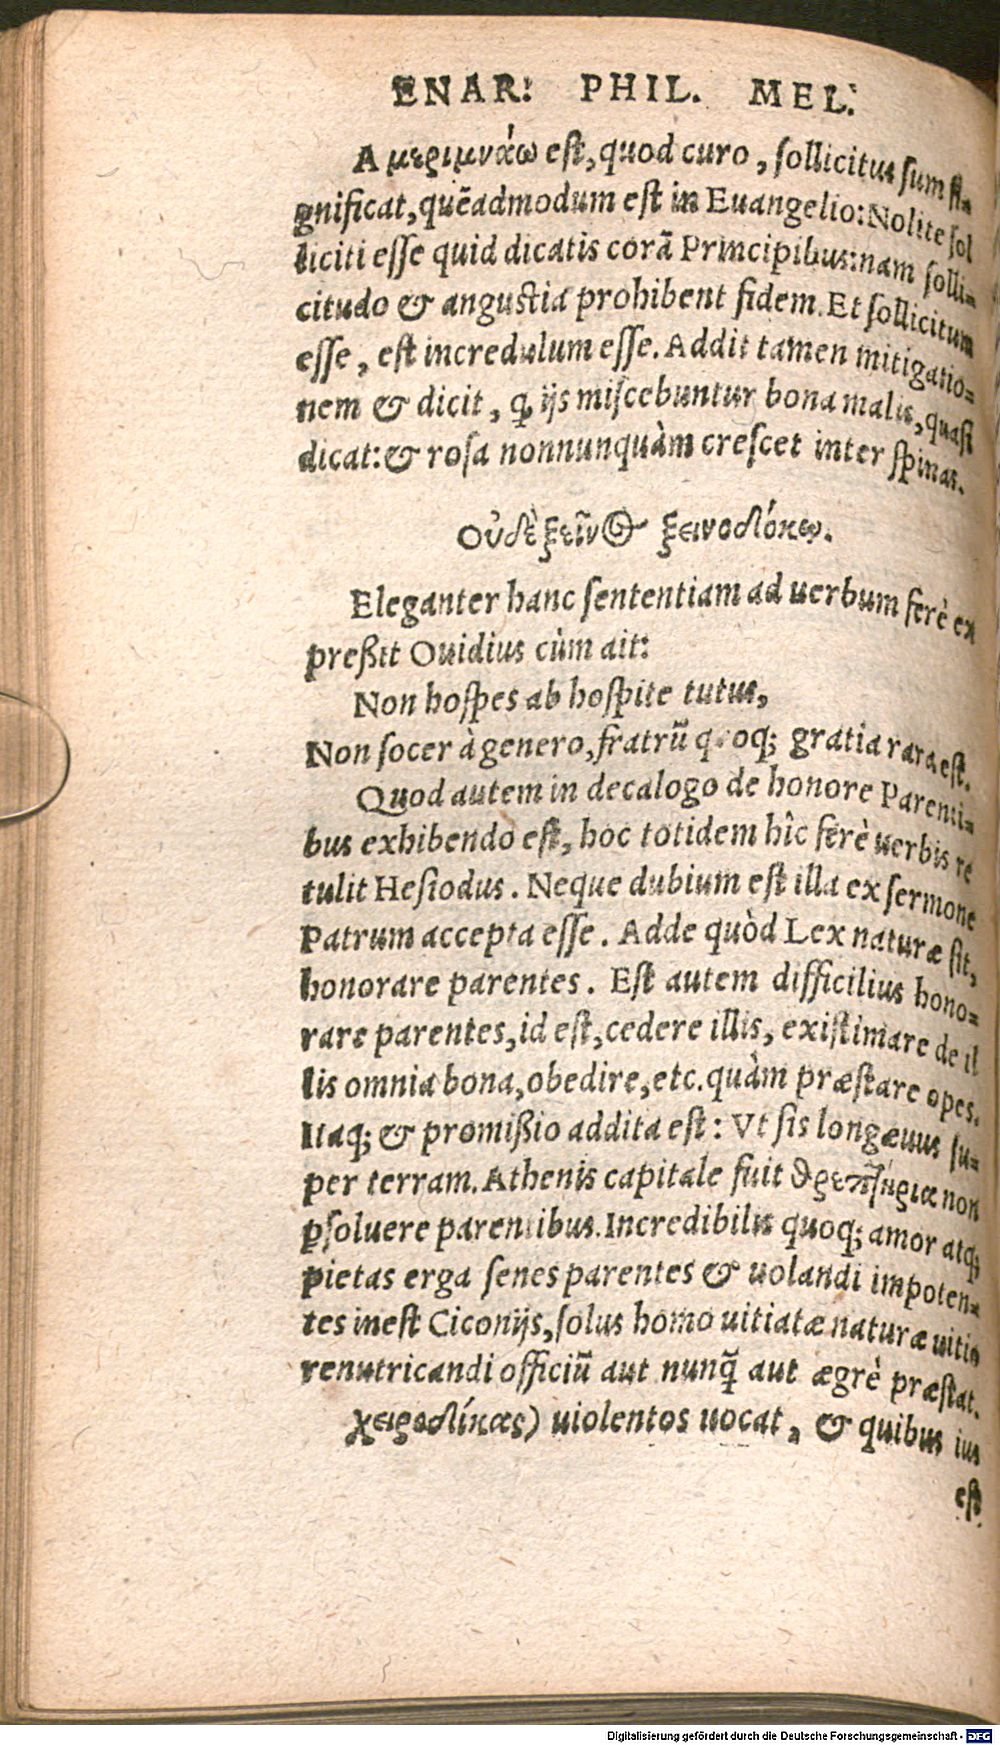 ENAR: PHIL. MEL:
A μεριμνάω eſt, quod curo, ſollicitus ſum ſi-
gnificat, quēadmodum eſt in Euangelio: Nolite ſol
liciti eſſe quid dicatis corā Principibus: nam ſolli-
citudo & anguſtia prohibent fidem. Et ſollicitum
eſſe, eſt incredulum eſſe. Addit tamen mitigatio-
nem & dicit, ꝙ ijs miſcebuntur bona malis, quaſi
dicat: & roſa nonnunquàm creſcet inter ſpinas.
Οὐδὲ ξεῖνος ξεινοδόκῳ.
Eleganter hanc ſententiam ad uerbum ferè ex
preßit Ouidius cùm ait:
Non hoſpes ab hoſpite tutus,
Non ſocer à genero, fratrū quoq; gratia rara eſt.
Quod autem in decalogo de honore Parenti-
bus exhibendo eſt, hoc totidem hîc ferè uerbis re
tulit Heſiodus. Neque dubium eſt illa ex ſermone
Patrum accepta eſſe. Adde quòd Lex naturæ ſit,
honorare parentes. Eſt autem difficilius hono-
rare parentes, id eſt, cedere illis, exiſtimare de il
lis omnia bona, obedire, etc. quàm præſtare opes.
Itaq; & promißio addita eſt: Vt ſis longæuus ſu-
per terram. Athenis capitale fuit θρεπτήρια non
ꝑſoluere parentibus. Incredibilis quoq; amor atq;
pietas erga ſenes parentes & uolandi impoten-
tes ineſt Ciconijs, ſolus homo uitiatæ naturæ uitio
renutricandi officiū aut nunq̃ aut ægrè præſtat.
χειροδίκας) uiolentos uocat, & quibus ius
eſt
Digitalisierung gefördert durch die Deutsche Forschungsgemeinschaft - DFG